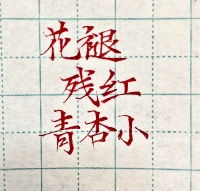 花褪
残红
青杏小